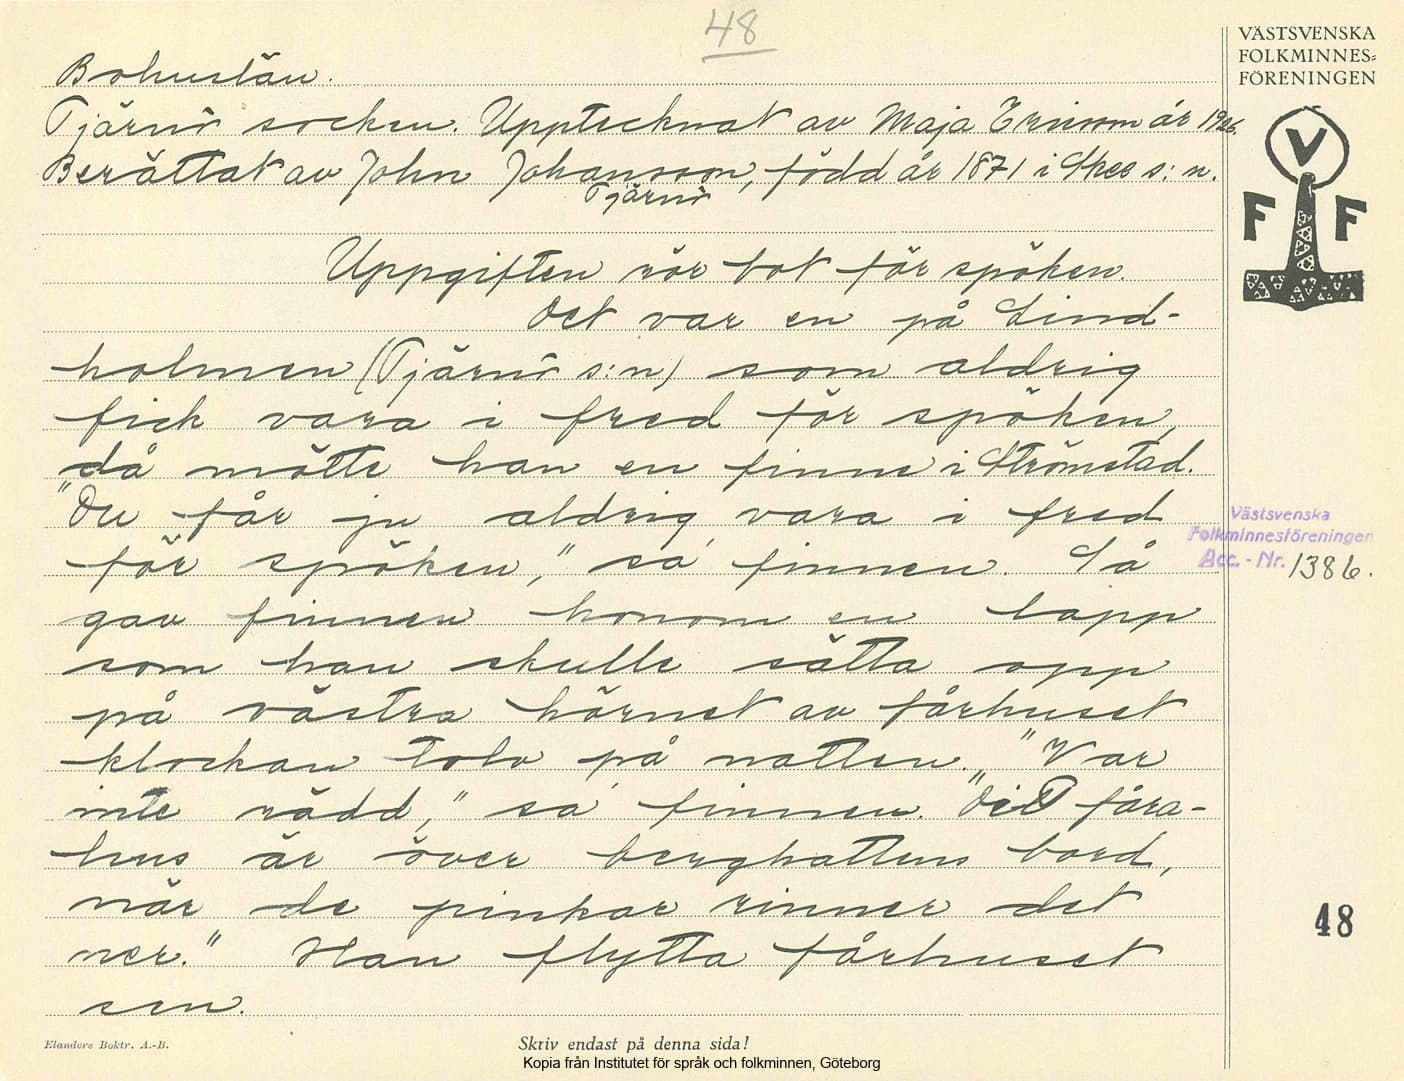 48
VÄSTSVENSKA
FOLKMINNES=
FÖRENINGEN
V
F F
Bohuslän.
Tjärnö socken. Upptecknat av Maja Ericson år 1926.
Berättat av John Johansson, född år 1871 i Skee s:n.
Tjärnö
Uppgiften rör bot för spöken.
Det var en på Lind-
holmen (Tjärnö s:n) som aldrig
fick vara i fred för spöken,
då mötte han en finne i Strömstad.
"Du får ju aldrig vara i fred
för spöken," sa finnen. Så
gav finnen honom en lapp
som han skulle sätta opp
på västra hörnet av fårhuset
klockan tolv på natten. "Var
inte rädd," sa finnen. "Ditt fåra-
hus är över bergkattens bord,
när de pinkar rinner det
ner." Han flytta fårhuset
sen.
Västsvenska
Folkminnesföreningen
Acc.-Nr. 1386.
48
Elanders Boktr. A.-B.
Skriv endast på denna sida!
Kopia från Institutet för språk och folkminnen, Göteborg